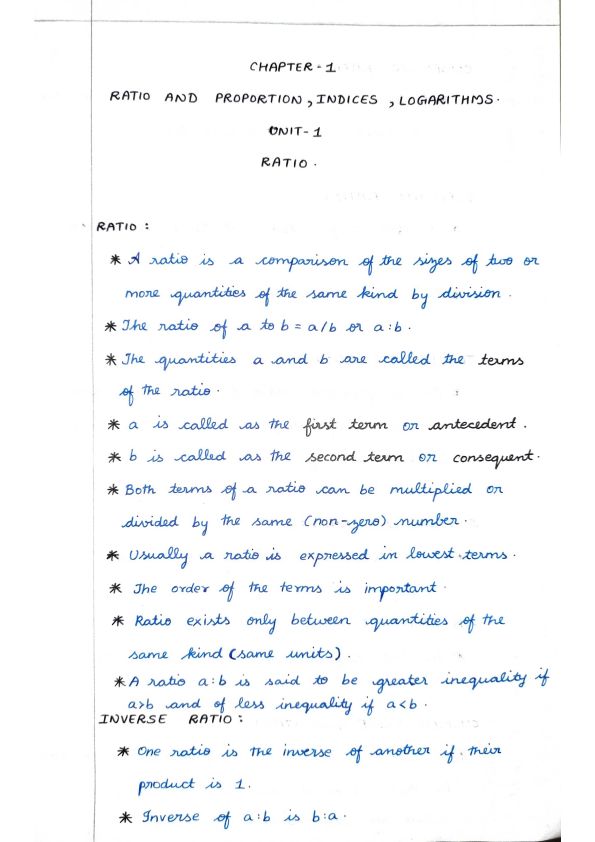 CHAPTER - 1
RATIO AND PROPORTION, INDICES, LOGARITHMS.
UNIT - 1
RATIO.
RATIO :
* A ratio is a comparison of the sizes of two or
more quantities of the same kind by division.
* The ratio of a to b = a/b or a:b.
* The quantities a and b are called the terms
of the ratio.
* a is called as the first term or antecedent.
* b is called as the second term or consequent.
* Both terms of a ratio can be multiplied or
divided by the same (non-zero) number.
* Usually a ratio is expressed in lowest terms.
* The order of the terms is important.
* Ratio exists only between quantities of the
same kind (same units).
* A ratio a:b is said to be greater inequality if
a>b and of less inequality if a<b.
INVERSE RATIO :
* One ratio is the inverse of another if their
product is 1.
* Inverse of a:b is b:a.